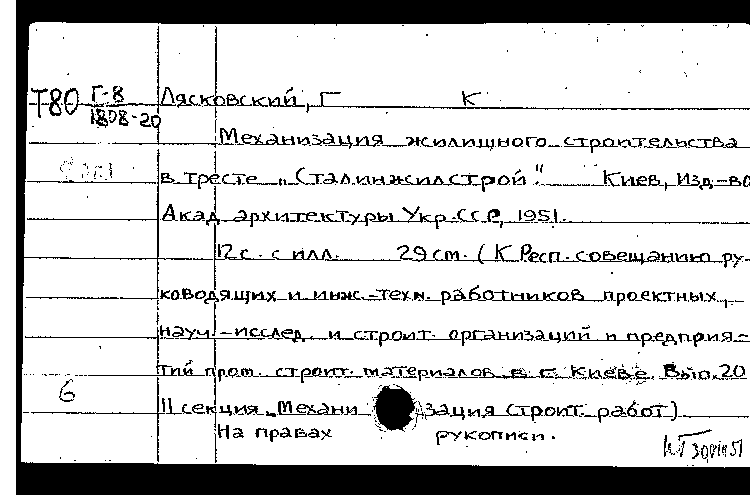 Т80 Г-8 Лясковский, Г К
1808-20
Механизация жилищного строительства
в тресте „Сталинжилстрой". Киев, Изд-во
Акад архитектуры Укр.ССР, 1951.
12 с. с илл. 29 см. (К Респ. совещанию ру-
ководящих и инж.-техн. работников проектных,
науч.-исслед. и строит. организаций и предприя-
тий пром. строит. материалов в г. Киеве. Вып. 20
6
II секция „Механизация строит. работ)
На правах рукописи.